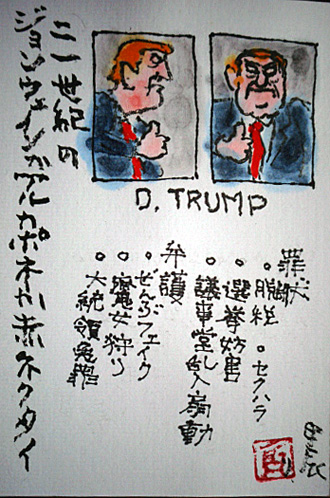 D. TRUMP
罪状
。脱税 。セクハラ
。選挙妨害
。議事堂乱入扇動
弁護
。ぜんぶフェイク
。魔女狩り
。大統領
二一世紀の
ジョンウェインかアルカポネか赤ネクタイ